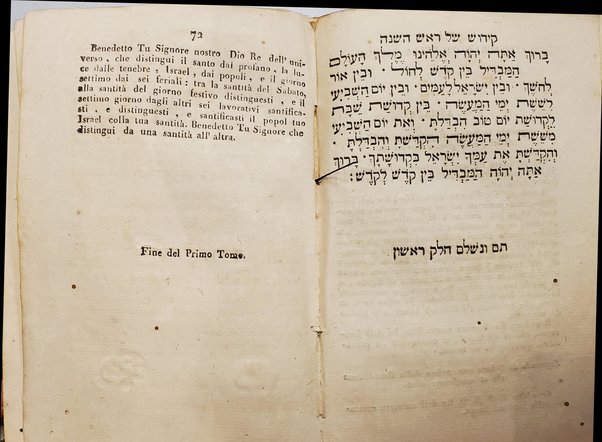 72
Benedetto Tu Signore nostro Dio Re dell' uni-
verso, che distingui il santo dai profano, la lu-
ce dalle tenebre, Israel, dai popoli, e il giorno
settimo dai sei feriali: tra la santità del Sabato,
alla santità del giorno festivo distinguesti, e il
settimo giorno dagli altri sei lavorativi santifica-
sti, e distinguesti, e santificasti il popol tuo
Israel colla tua santità. Benedetto Tu Signore che
distingui da una santità all' altra.
Fine del Primo Tomo.
קידוש של ראש השנה
בָּרוּךְ אַתָּה יְהוָה אֱלֹהֵינוּ מֶלֶךְ הָעוֹלָם
הַמַּבְדִּיל בֵּין קֹדֶשׁ לְחוֹל · וּבֵין אוֹר
לְחֹשֶׁךְ · וּבֵין יִשְׂרָאֵל לָעַמִּים · וּבֵין יוֹם הַשְּׁבִיעִי
לְשֵׁשֶׁת יְמֵי הַמַּעֲשֶׂה · בֵּין קְדוּשַּׁת שַׁבָּת
לִקְדוּשַּׁת יוֹם טוֹב הִבְדַּלְתָּ · וְאֶת יוֹם הַשְּׁבִיעִי
מִשֵּׁשֶׁת יְמֵי הַמַּעֲשֶׂה הִקְדַּשְׁתָּ וְהִבְדַּלְתָּ ·
וְהִקְדַּשְׁתָּ אֶת עַמְּךָ יִשְׂרָאֵל בִּקְדוּשָּׁתָךְ · בָּרוּךְ
אַתָּה יְהוָה הַמַּבְדִּיל בֵּין קֹדֶשׁ לְקֹדֶשׁ :
תם ונשלם חלק ראשון